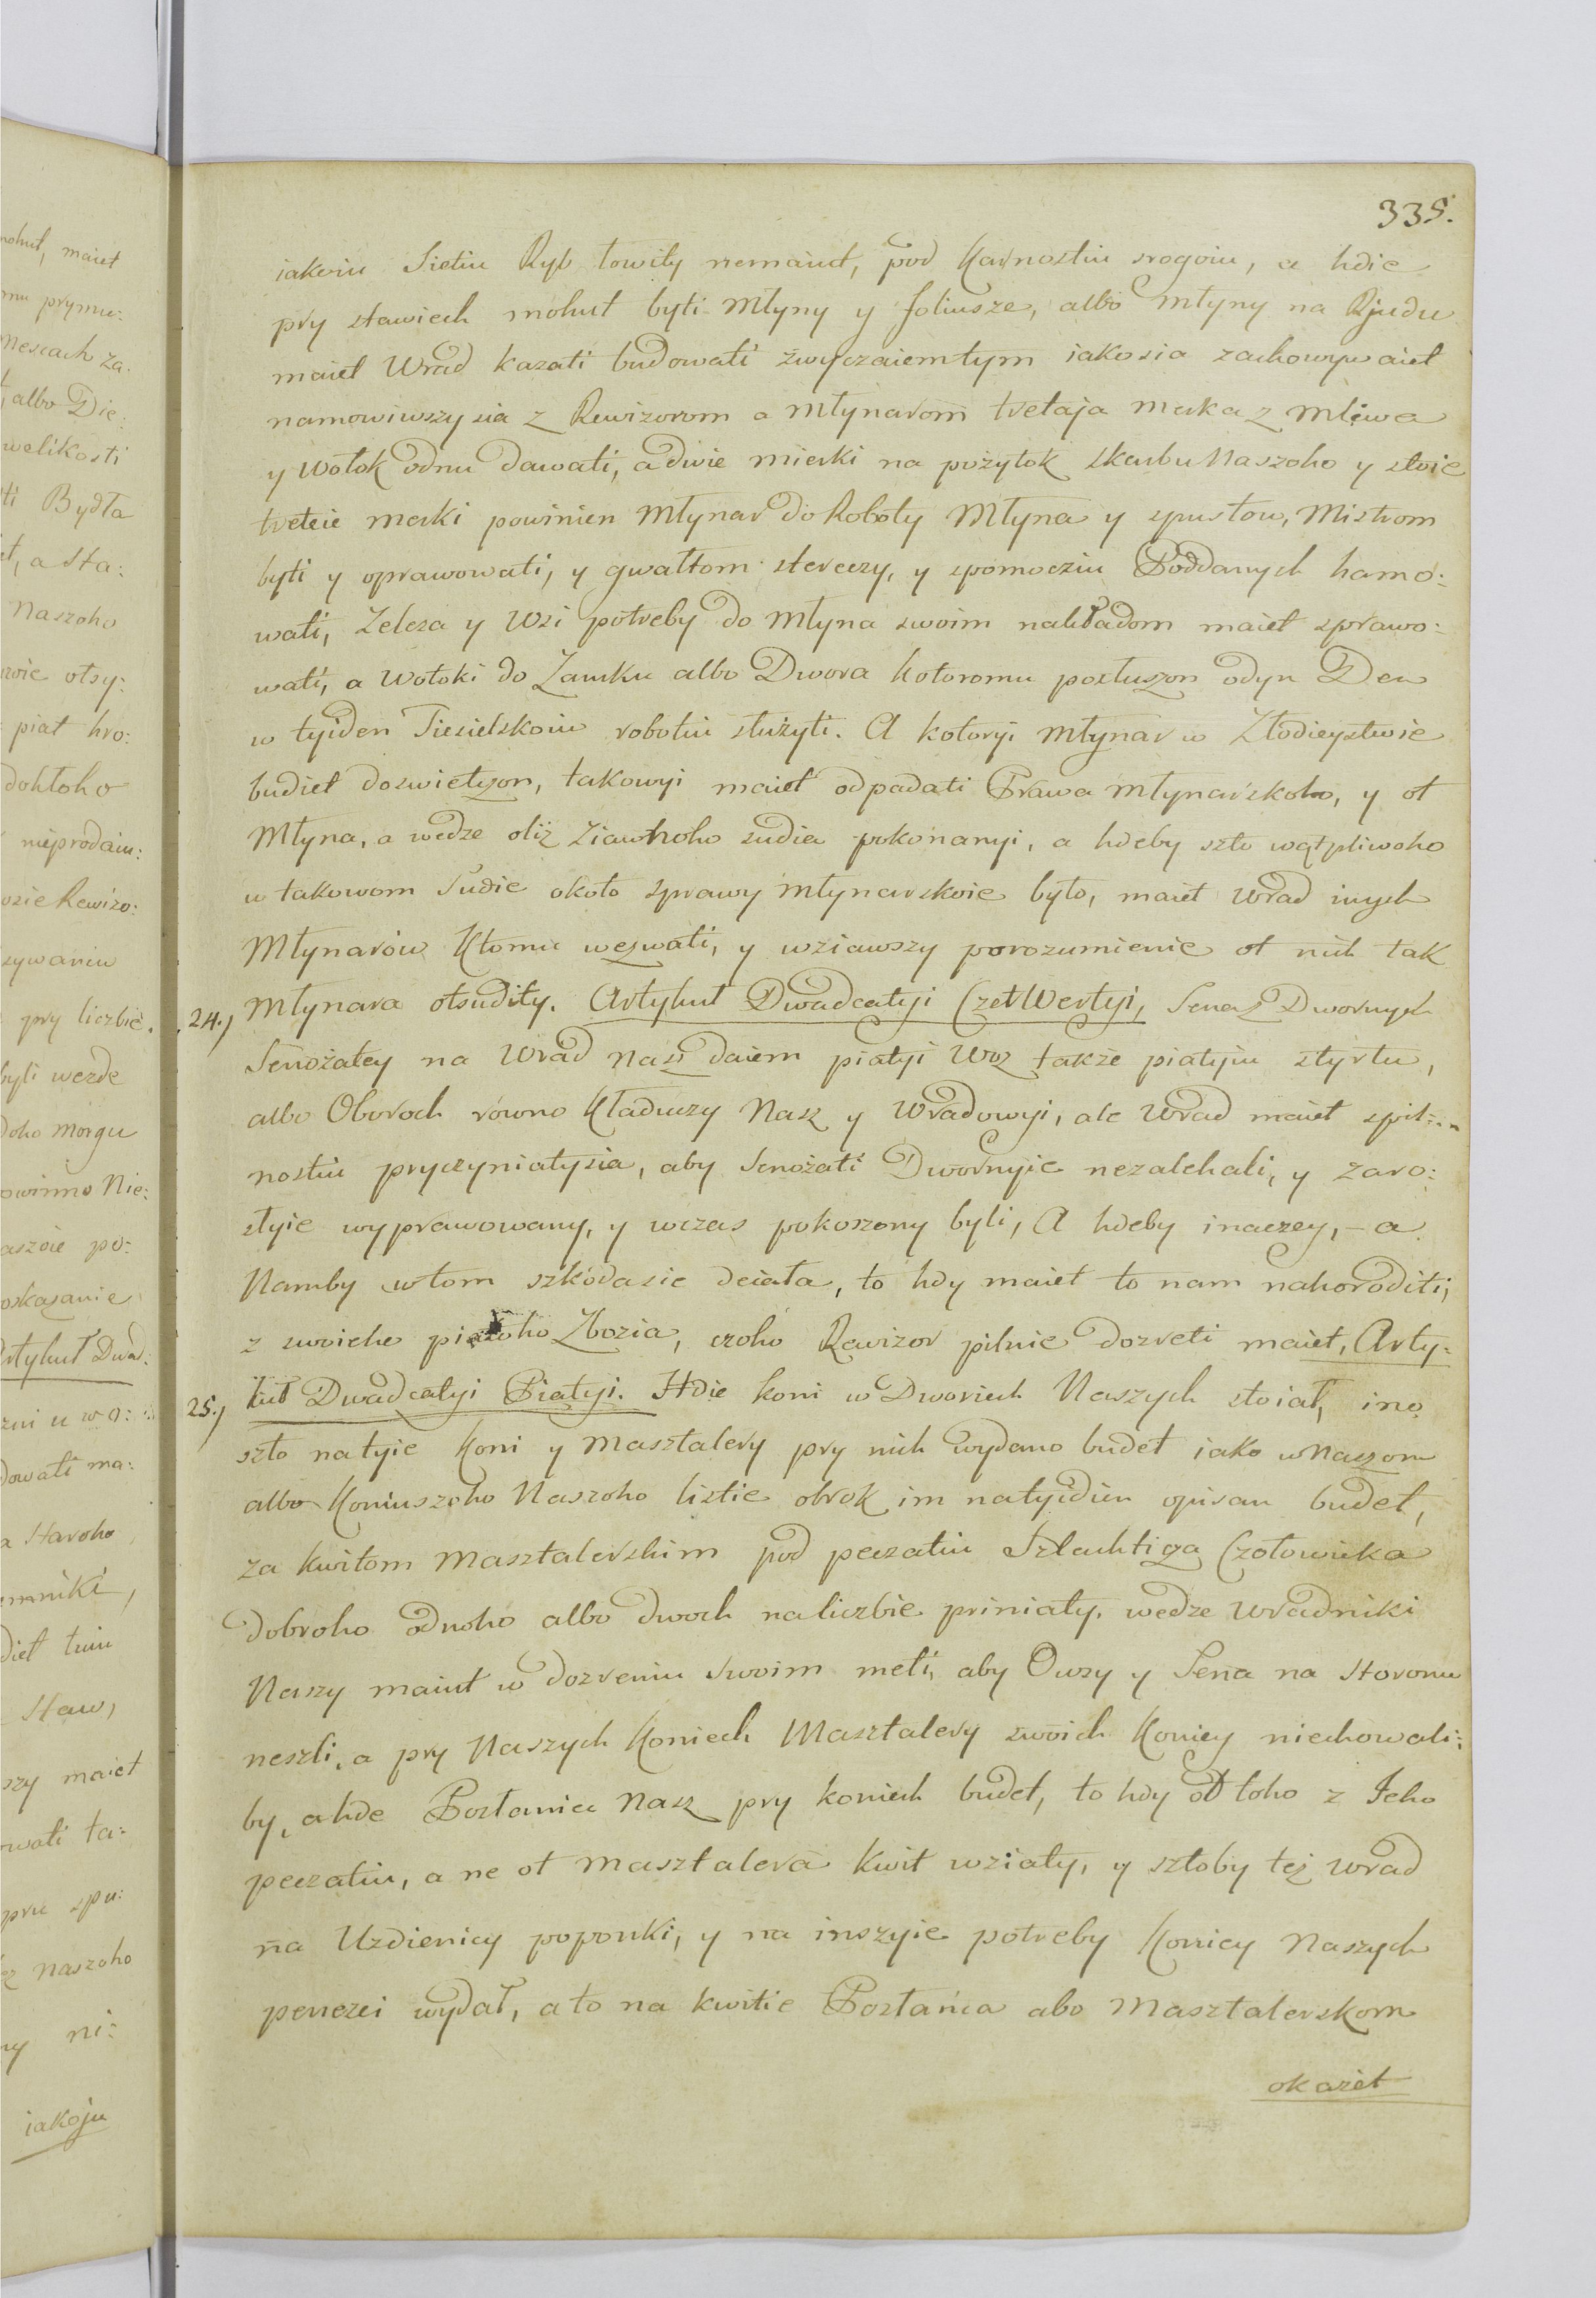 335.
iakoiu Sietiu Ryb łowity nemaiut, pod karnostiu srogoiu, a hdie
pry stawiech mohut byti Młyny y foliusze, albo młyny na Rjudu
maiet Wrad kazati budowati zwyczaiemtym iakosia zachowywaiet
namowiwszysia z Rewizorom a Młynarom tretaja merka z mliwa
y Wołok odnu dawati, a dwie mierki na pożytok skarbu Naszoho y stoie
treteie merki powinien Młynar do Roboty Młyna y spustow, Mistrom
byti y oprawowati, y gwałtom stereczy, y spomocziu Poddanych hamo:
wati, Zeleza y Wsi potreby do Młyna swoim nakładom maiet sprawo:
wati, a Wołoki do Zamku albo Dwora kotoromu posłuszon odyn Den
w tyiden Tiesielskoiu robotiu służyti. A kotoryi Młynar w Złodieystwie
budiet doswietszon, takowyi maiet odpadati Prawa Młynarskoho, y ot
Młyna, a wedze oliż ziawnoho sudia pokonanyi, a hdeby szto wątpliwoho
w takowom Sudie około sprawy młynarskoie było, maiet Wrad inych
Młynarów Ktomu wezwati, y wziawszy porozumienie ot nich tak
24.) Młynara otsudity. Artykuł Dwadcatyi CzetWertyi, Sena z Dwornych
Senożatey na Wrad nasz daiem piatyi Woz także piatyiu styrtu,
albo Oboroch rowno Kładuczy Nasz y Wradowyi, ale Wrad maiet spil:
nostiu pryczyniatysia, aby Senożati Dwornyie nezalehali, y zaro:
słyie wyprawowany, y wczas pokoszony byli, A hdeby inaczey, – a
Namby wtom szkodasie deiała, to hdy maiet to nam nahoroditi,
z swoieho piatoho Zbozia, czoho Rewizor pilnie dozreti maiet, Arty:
25.) kuł Dwadcatyi Piatyi. Hdie koni w Dworiech Naszych stoiat, ino
szto natyie Koni y Masztalery pry nich wydano budet iako wNaszom
albo Koniuszoho Naszoho listie obrok im natyidien opisan budet,
za kwitom Masztalerskim pod peczatiu Szlachtiga Czołowieka
dobroho odnoho albo dwoch naliczbie priniaty, wedze Wradniki
Naszy maiut w dozreniu swoim meti, aby Owsy y Sena na storonu
neszli, a pry Naszych Koniech Masztalery swoich Koniey niechowali:
by, ahde Posłaniec Nasz pry koniech budet, to hdy od toho z Jeho
peczatiu, a ne ot Masztalera Kwit wziaty, y sztoby też Wrad
na Uzdienicy poponki, y na inszyie potreby Koniey Naszych
penezei wydał, a to na kwitie Posłańca abo Masztalerskom
okażet
nohut, maiet
mu prymu:
Mescach za:
albo Die:
welikosti
ti Bydła
et, a Sta:
Naszoho
otsy:
piat hro:
dohtoho
nieprodaiu:
Rewizo:
sywaniu
pry liczbie,
byli wezde
doho morgu
owinno Nie:
aszoie po:
oskazanie
Artykuł Dwad:
zni u wo:
dowati ma:
a Staroho
emniki,
diet tuiu
Staw,
szy maiet
owati ta:
pru spu:
Naszoho
ny ni:
iakoju